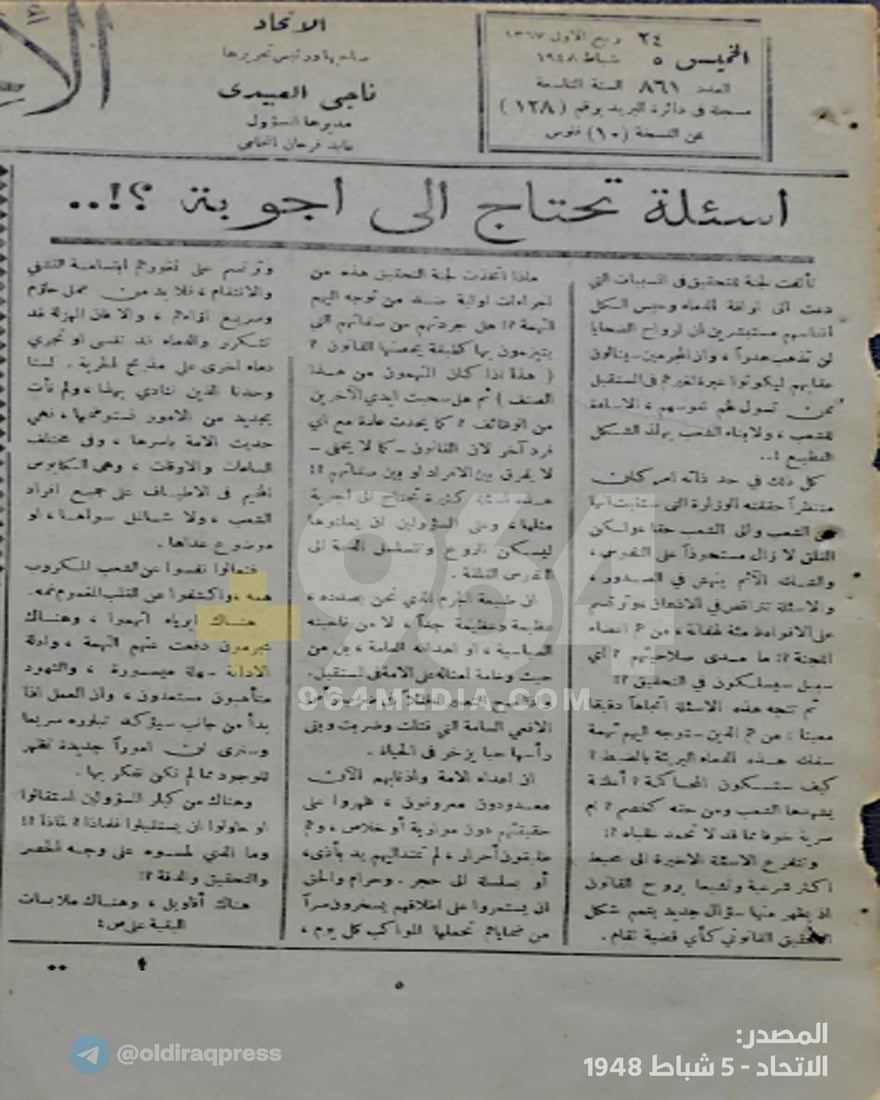 الاتحاد
صاحبها ورئيس تحريرها
ناجي العبيدي
مديرها المسؤول
عابد فرحان المحامي
الخميس ٢٤ ربيع الاول ١٣٦٧
٥ شباط ١٩٤٨
العدد ٨٦١ السنة التاسعة
مسجلة في دائرة البريد برقم (١٢٨)
ثمن النسخة (١٠) فلوس
اسئلة تحتاج الى اجوبة ؟!..
تألفت لجنة للتحقيق في المسببات التي
دعت الى اراقة الدماء وحبس الكل
انفاسهم مستبشرين ان ارواح الضحايا
لن تذهب هدراً، وان المجرمين سينالون
عقابهم ليكونوا عبرة لغيرهم في المستقبل
ممن تسول لهم نفوسهم، الاساءة
للشعب، ولابناء الشعب بهذا الشكل
الفظيع !..
كل ذلك في حد ذاته امر كان
منتظراً حققته الوزارة التي
الشعب والى الشعب حقا، ولكن
القلق لا زال مستحوذاً على النفوس،
والشك الآثم ينهش في الصدور،
والاسئلة تتراقص في الاذهان وترتسم
على الافواه، من هم اعضاء
اللجنة ؟! ما مدى صلاحيتهم ؟ أي
سبيل سيسلكون في التحقيق ؟!
ثم تتجه هذه الاسئلة اتجاها دقيقا
معينا: من هم الذين ستوجه اليهم تهمة
سفك هذه الدماء البريئة بالضبط ؟
كيف ستكون المحاكمة ؟ أعلنية
يشهدها الشعب ومن حقه كخصم ؟ ام
سرية خوفا مما قد لا تحمد عقباه ؟!
وتتفرع الاسئلة الاخيرة الى محيط
اكثر شرعية وتشبعا بروح القانون
اذ يظهر منها سؤال جديد يتمم شكل
التحقيق القانوني كأي قضية تقام.
ماذا اتخذت لجنة التحقيق هذه من
اجراءات اولية ضد من توجه اليهم
التهمة ؟! هل جردتهم من صفاتهم التي
يتميزون بها كطبقة يحصنها القانون ؟
( هذا اذا كان المتهمون من هذا
الصنف ) ثم هل سحبت ايدي الآخرين
من الوظائف ؟ كما يحدث عادة مع أي
فرد آخر لان القانون - كما لا يخفى -
لا يفرق بين الافراد او بين صفاتهم !!
هذه اسئلة كثيرة تحتاج الى اجوبة
مثلها، وعلى المسؤولين ان يعلنوها
ليسكن الروع وتتسلل الى
النفوس القلقة.
ان طبيعة الجرم الذي نحن بصدده،
عظيمة وعظيمة جداً، لا من ناحيته
السياسية، او اهدافه العامة، بل من
حيث وخامة امثاله على الامة في المستقبل.
الافعى السامة التي قتلت وضربت وبقى
رأسها حيا يزخر في الحياة.
ان اعداء الامة واذنابهم الآن
معدودون معروفون، ظهروا على
حقيقتهم دون مواربة أو خلاص، وهم
طليقون أحرار، لم تمتد اليهم يد بأذى،
أو بسلسلة الى حجر. وحرام والحق
ان يستمروا على اخلاقهم يسخرون سراً
من ضحاياهم تحملها المواكب كل يوم،
وترتسم على ثغورهم ابتسامة التشفي
والانتقام، فلا بد من عمل حازم
وسريع ازاءهم، والا فان المهزلة قد
تتكرر والدماء قد تنسى او تجري
دماء اخرى على مذبح الحرية. لسنا
وحدنا الذين ننادي بهذا، ولم نأت
بجديد من الامور فنستوضحها، فهي
حديث الامة باسرها، وفي مختلف
الساعات والاوقات، وهي الكابوس
الجاثم في الاطياف على جميع افراد
الشعب، ولا شاغل سواها، او
موضوع عداها.
فتعالوا نفسوا عن الشعب المكروب
همه، واكشفوا عن القلب المغموم غمه.
هناك ابرياء اتهموا، وهناك
مجرمون دفعت عنهم التهمة، وادلة
الادانة سهلة ميسورة، والشهود
متأهبون مستعدون، وان العمل اذا
بدأ من جانب سيؤكد تبلوره سريعا
وسنرى ان اموراً جديدة تظهر
للوجود مما لم نكن نفكر بها.
وهناك من كبار المسؤولين استقالوا
او حاولوا ان يستقيلوا فلماذا ؟ لماذا ؟!
وما الذي لمسوه على وجه الحصر
والتحقيق والدقة ؟!
هناك أقاويل، وهناك ملابسات
البقية على ص ٤
964
964MEDIA.COM
@oldiraqpress
المصدر:
الاتحاد - 5 شباط 1948